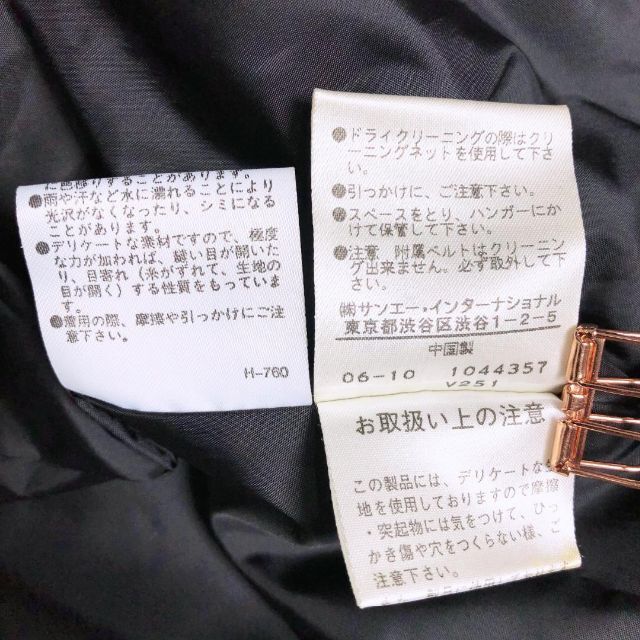 に色移りすることがあります。
●雨や汗など水に濡れることにより
光沢がなくなったり、シミになる
ことがあります。
●デリケートな素材ですので、極度
な力が加われば、縫い目が開いた
り、目寄れ（糸がずれて、生地の
目が開く）する性質をもっていま
す。
●着用の際、摩擦や引っかけにご注
意下さい。
H-760
●ドライクリーニングの際はクリ
ーニングネットを使用して下さ
い。
●引っかけに、ご注意下さい。
●スペースをとり、ハンガーにか
けて保管して下さい。
●注意 附属ベルトはクリーニン
グ出来ません。必ず取外して下
さい。
㈱サンエー・インターナショナル
東京都渋谷区渋谷1-2-5
中国製
06-10 1044357
V251
お取扱い上の注意
この製品には、デリケートな生
地を使用しておりますので摩擦
・突起物には気をつけて、ひっ
かき傷や穴をつくらない様、ご
注意下さい。